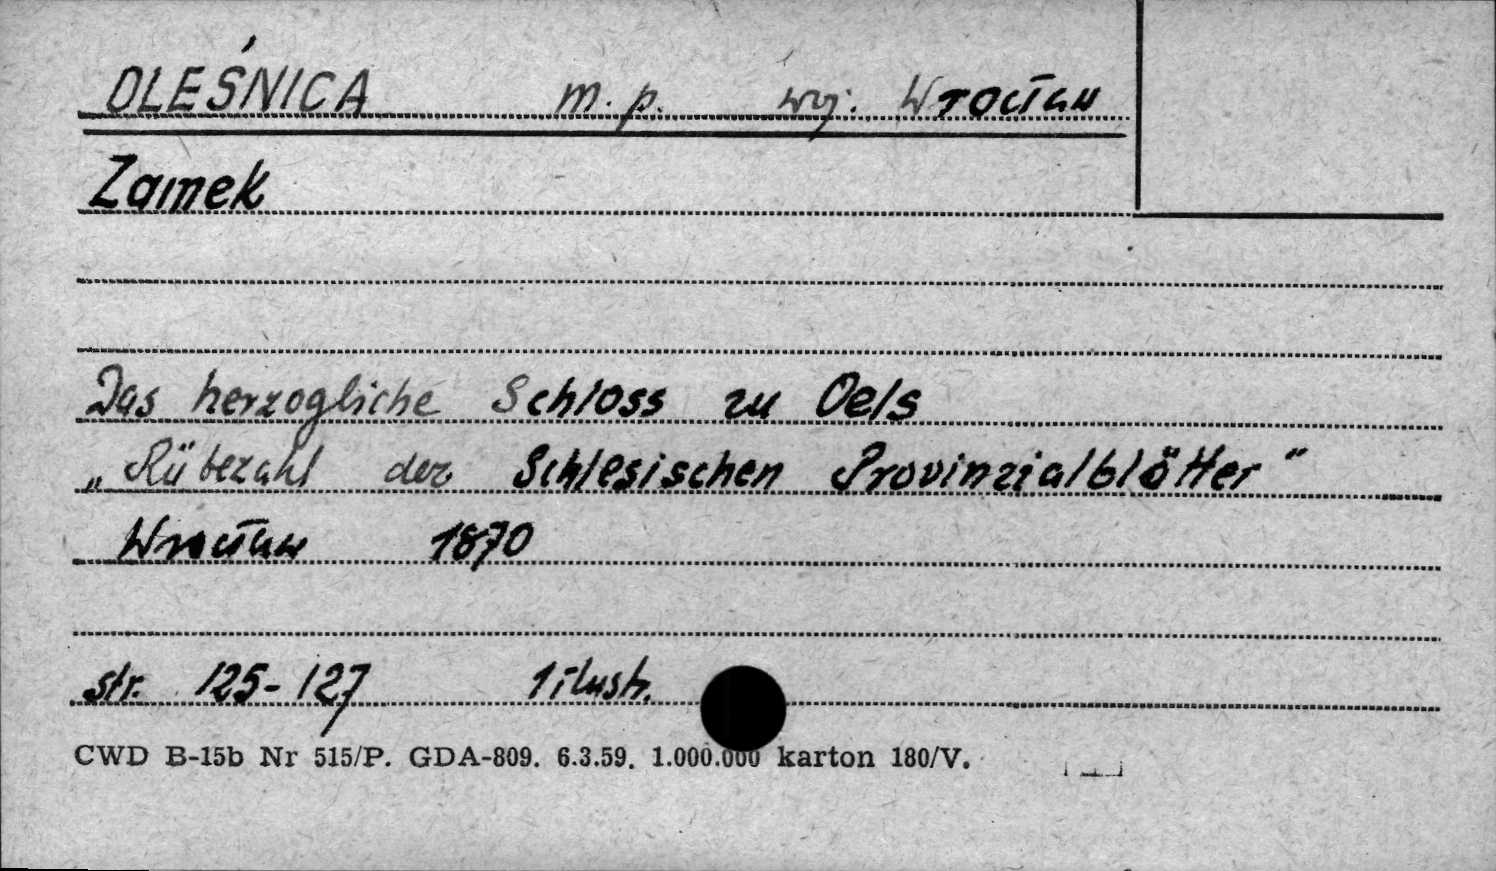 OLEŚNICA m. p. woj. Wrocław
Zamek
Das herzogliche Schloss zu Oels
„Rübezahl der Schlesischen Provinzialblätter"
Wrocław 1870
str. 125-127 1 ilustr.
CWD B-15b Nr 515/P. GDA-809. 6.3.59. 1.000.000 karton 180/V.